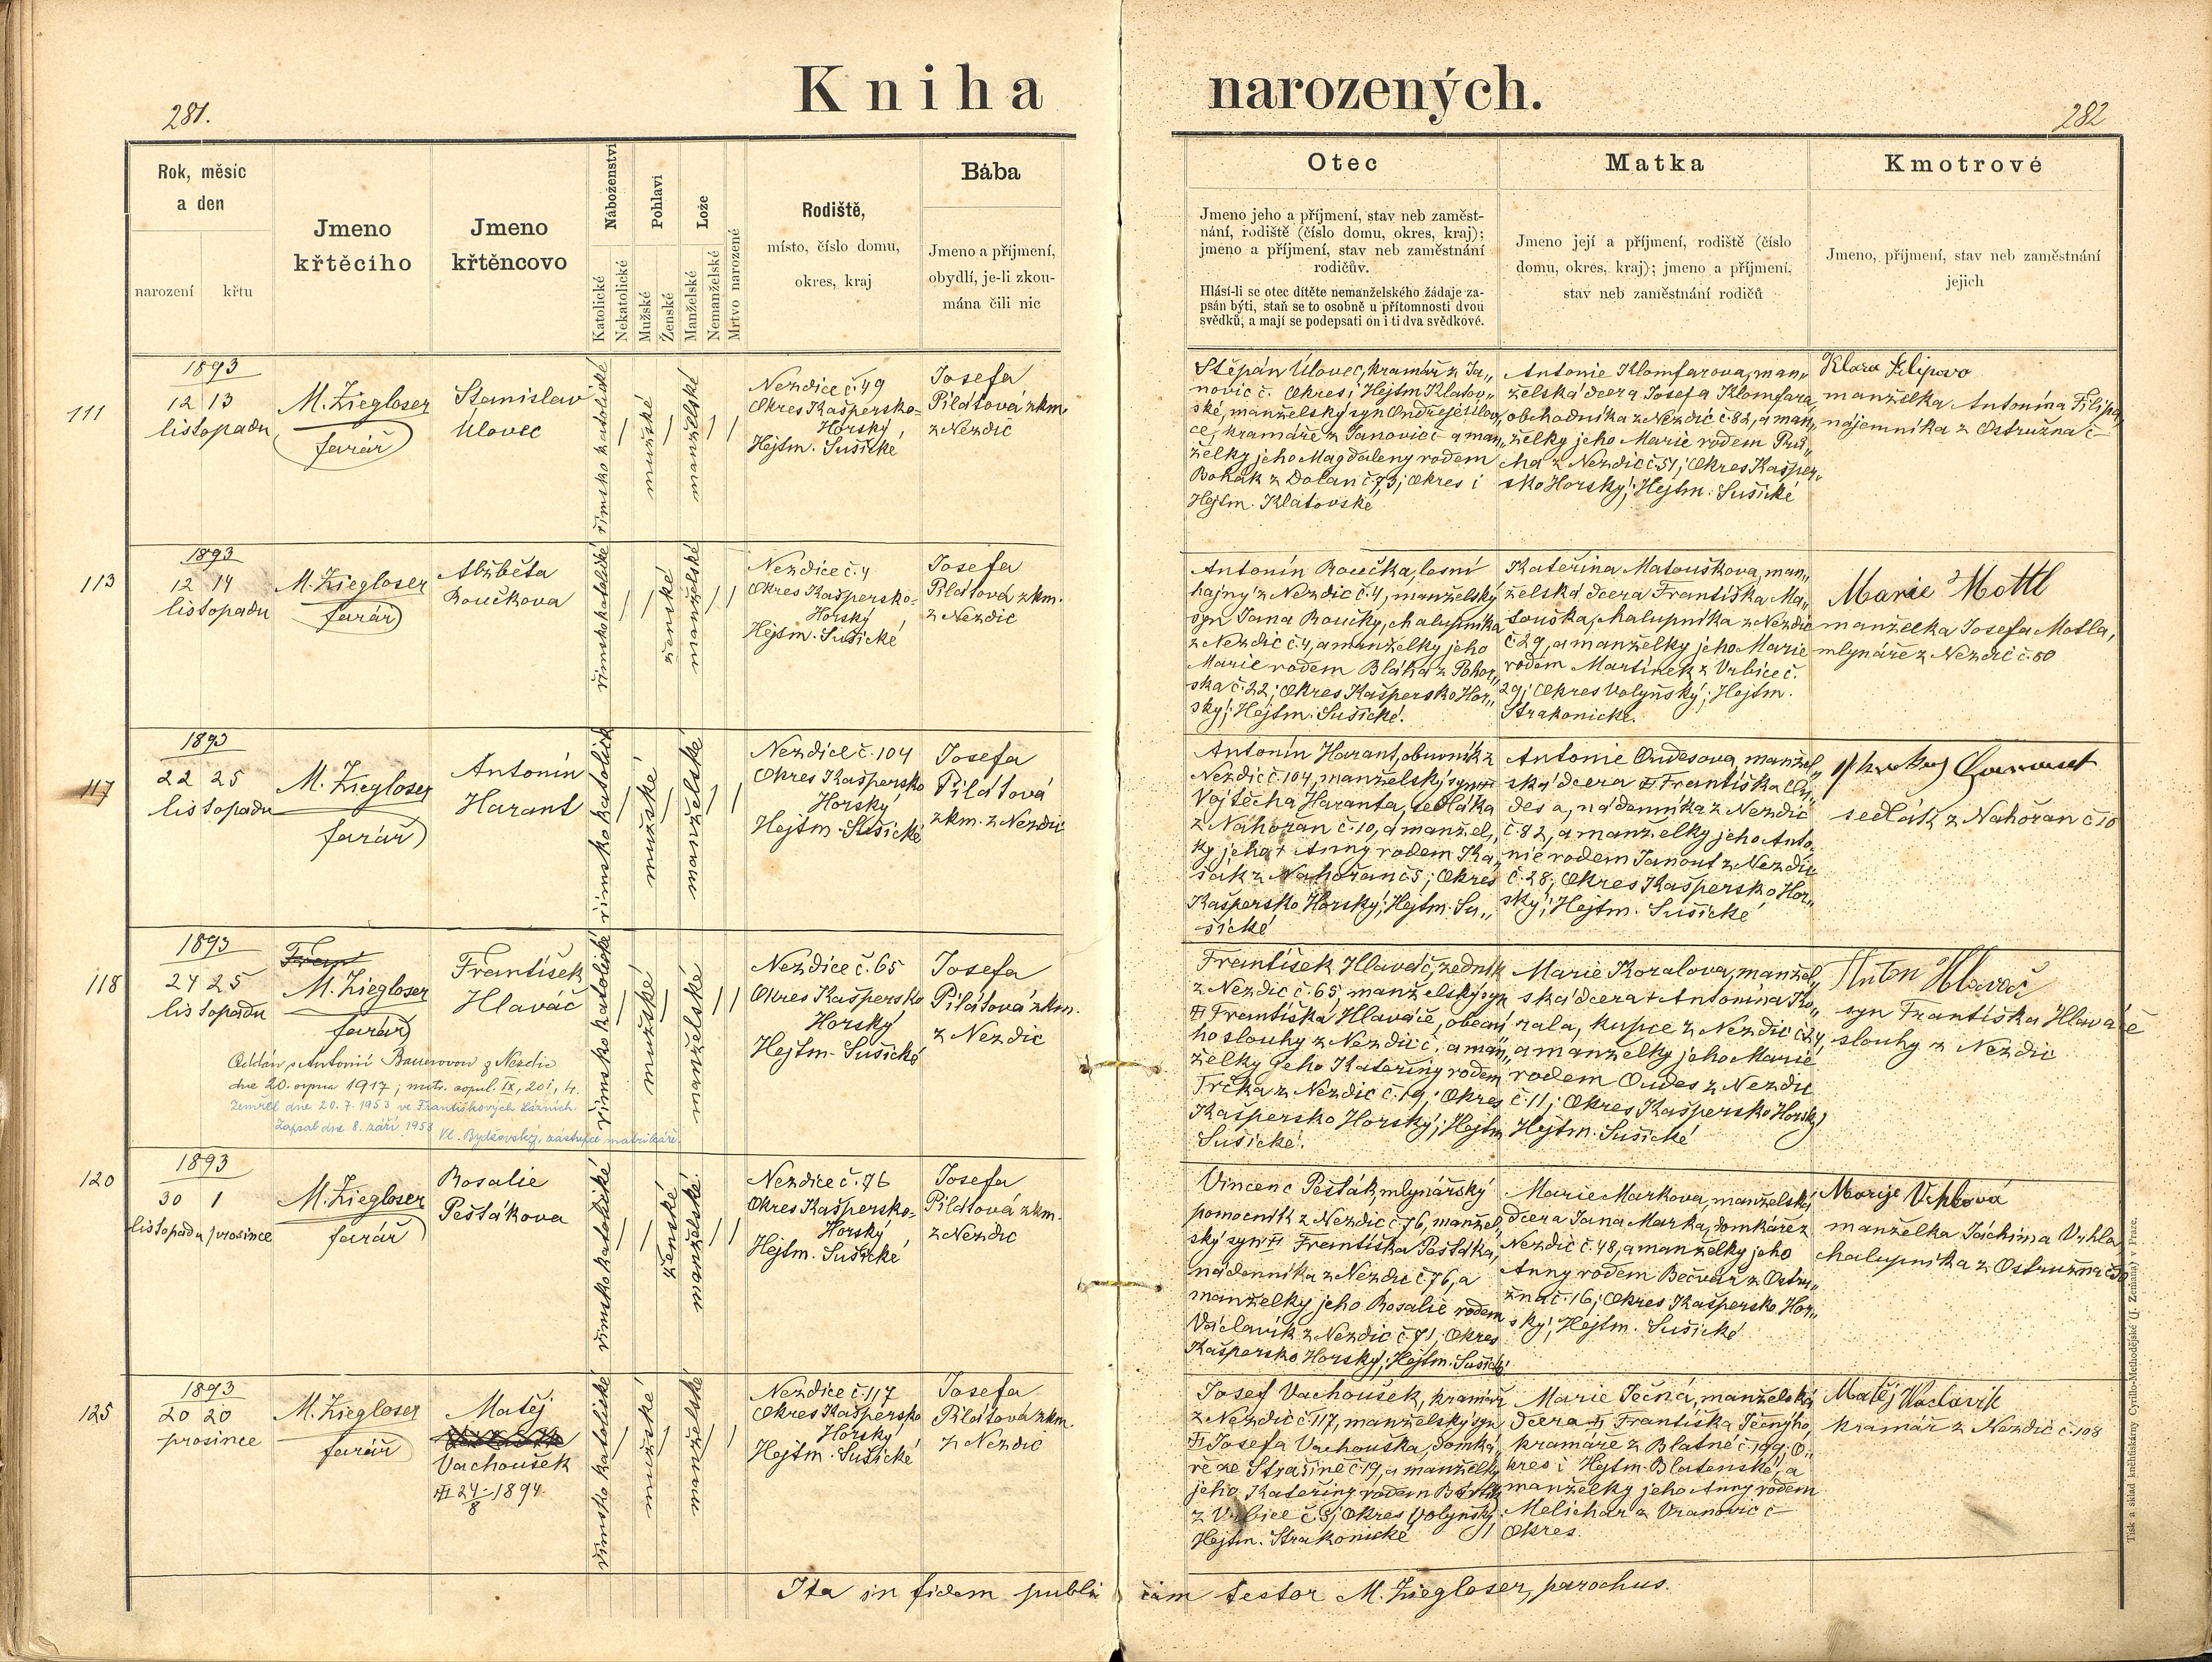 281.
Kniha narozených.
282
Rok, měsíc
a den
narození křtu
Jmeno
křtěciho
Jmeno
křtěncovo
Náboženství
Katolické
Nekatolické
Pohlaví
Mužské
Ženské
Lože
Manželské
Nemanželské
Mrtvo narozené
Rodiště,
místo, číslo domu,
okres, kraj
Bába
Jmeno a příjmení,
obydlí, je-li zkou-
mána čili nic
Otec
Jmeno jeho a příjmení, stav neb zaměst-
nání, rodiště (číslo domu, okres, kraj);
jmeno a příjmení, stav neb zaměstnání
rodičův.
Hlásí-li se otec dítěte nemanželského žádaje za-
psán býti, staň se to osobně u přítomnosti dvou
svědků, a mají se podepsati on i ti dva svědkové.
Matka
Jmeno její a příjmení, rodiště (číslo
domu, okres, kraj); jmeno a příjmení,
stav neb zaměstnání rodičů
Kmotrové
Jmeno, příjmení, stav neb zaměstnání
jejich
111
1893
12 13
listopadu
M. Ziegloser
farář
Stanislav
Úlovec
římsko katolické
mužské
manželské
Nezdice č. 49
Okres Kašpersko-
Horský
Hejtm. Sušické
Josefa
Pilátová zkm.
z Nezdic
Štěpán Úlovec, kramář z Ja„
novic č. Okres i Hejtm Klatov„
ské, manželský syn Ondřeje Úlov„
ce, kramáře z Janovic č a man„
želky jeho Magdaleny rodem
Bohák z Dolan č. 73; Okres i
Hejtm. Klatovské
Antonie Klomfarova, man„
želská dcera Josefa Klomfara,
obchodníka z Nezdic č 82, a man„
želky jeho Marie rodem Pru„
cha z Nezdic č. 51; Okres Kašper„
sko Horský; Hejtm. Sušické
Klara Filipova
manželka Antonína Filipa,
nájemníka z Ostružna č
113
1893
12 14
listopadu
M. Ziegloser
farář
Alžběta
Roučkova
římsko katolické
ženské
manželské
Nezdice č. 4
Okres Kašpersko-
Horský
Hejtm. Sušické
Josefa
Pilátová zkm.
z Nezdic
Antonín Roučka, lesní
hajný z Nezdic č. 4, manželský
syn Jana Roučky, chalupníka
z Nezdic č. 4, a manželky jeho
Marie rodem Bláha z Pohor„
ska č. 22; Okres Kašpersko Hor„
ský; Hejtm. Sušické.
Kateřina Matouškova, man„
želská dcera Františka Ma„
touška, chalupníka z Nezdic
č. 29, a manželky jeho Marie
rodem Martínek z Vrbice č.
29; Okres Volyňský; Hejtm.
Strakonické.
Marie Mottl
manželka Josefa Motla,
mlynáře z Nezdic č. 50
117
1893
22 25
listopadu
M. Ziegloser
farář
Antonín
Harant
římsko katolické
mužské
manželské
Nezdice č. 104
Okres Kašpersko
Horský
Hejtm. Sušické
Josefa
Pilátová
zkm. z Nezdic
Antonín Harant, obuvník z
Nezdic č. 104, manželský syn
Vojtěcha Haranta, sedláka
z Nahořan č. 10, a manžel„
ky jeho + Anny rodem Ka„
šák z Nahořan č 5; Okres
Kašpersko Horský; Hejtm. Su„
šické
Antonie Oudesova, manžel„
ská dcera Františka Ou„
desa, nádenníka z Nezdic
č. 82, a manželky jeho Anto„
nie rodem Janout z Nezdic
č. 28; Okres Kašpersko Hor„
ský; Hejtm. Sušické
sedlák z Nahořan č 10
118
1893
24 25
listopadu
M. Ziegloser
farář
František
Hlaváč
římsko katolické
mužské
manželské
Nezdice č. 65
Okres Kašpersko
Horský
Hejtm. Sušické
Josefa
Pilátová zkm.
z Nezdic
Oddán s Antonií Bauerovou z Nezdic
dne 20. srpna 1917; matr. copul. IX, 201, 4.
Zemřel dne 20. 7. 1953 ve Františkových Lázních.
Zapsal dne 8. září 1953 Vl. Bydžovský, zástupce matrikáře.
František Hlaváč, zedník
z Nezdic č. 65, manželský syn
Františka Hlaváče, obecní
ho slouhy z Nezdic č. a man„
želky jeho Kateřiny rodem
Trčka z Nezdic č. 19; Okres
Kašpersko Horský; Hejtm
Sušické.
Marie Kozalova, manžel„
ská dcera + Antonína Ko„
zala, kupce z Nezdic č 24,
a manželky jeho Marie
rodem Oudes z Nezdic
č. 11; Okres Kašpersko Horský
Hejtm. Sušické
Anton Hlaváč
syn Františka Hlaváče
slouhy z Nezdic
120
1893
30 1
listopadu prosince
M. Ziegloser
farář
Rosalie
Pešťákova
římsko katolické
ženské
manželské
Nezdice č. 76
Okres Kašpersko-
Horský
Hejtm. Sušické
Josefa
Pilátová zkm.
z Nezdic
Vincenc Pešťák, mlynářský
pomocník z Nezdic č 76, manžel„
ský syn Františka Pešťáka,
nádenníka z Nezdic č 76, a
manželky jeho Rosalie rodem
Václavík z Nezdic č. 71; Okres
Kašpersko Horský; Hejtm. Sušické
Marie Markova, manželská
dcera Jana Marka, domkáře z
Nezdic č. 48, a manželky jeho
Anny rodem Bečvář z Ostru„
žna č. 16; Okres Kašpersko Hor„
ský; Hejtm. Sušické
Marije Vrhlová
manželka Jáchima Vrhla
chalupníka z Ostružna
125
1893
20 20
prosince
M. Ziegloser
farář
Matěj
Vachoušek
24/8 1894
římsko katolické
mužské
manželské
Nezdice č. 117
Okres Kašpersko
Horský
Hejtm. Sušické
Josefa
Pilátová zkm.
z Nezdic
Josef Vachoušek, kramář
z Nezdic č 117, manželský syn
Josefa Vachouška, domká„
ře ze Strašíně č 19, a manželky
jeho Kateřiny rodem
z Vrbice č 3; Okres Volyňský;
Hejtm. Strakonické
Marie Ječná, manželská
dcera Františka Ječnýho,
kramáře z Blatné č. 199; O„
kres i Hejtm. Blatenské, a
manželky jeho Anny rodem
Melichar z Vranovic č
Okres
Matěj Waclavik
kramář z Nezdic č. 108
Ita in fidem publicam testor M. Ziegloser, parochus.
Tisk a sklad knihtiskárny Cyrillo-Methodějské (J. Zeman) v Praze.